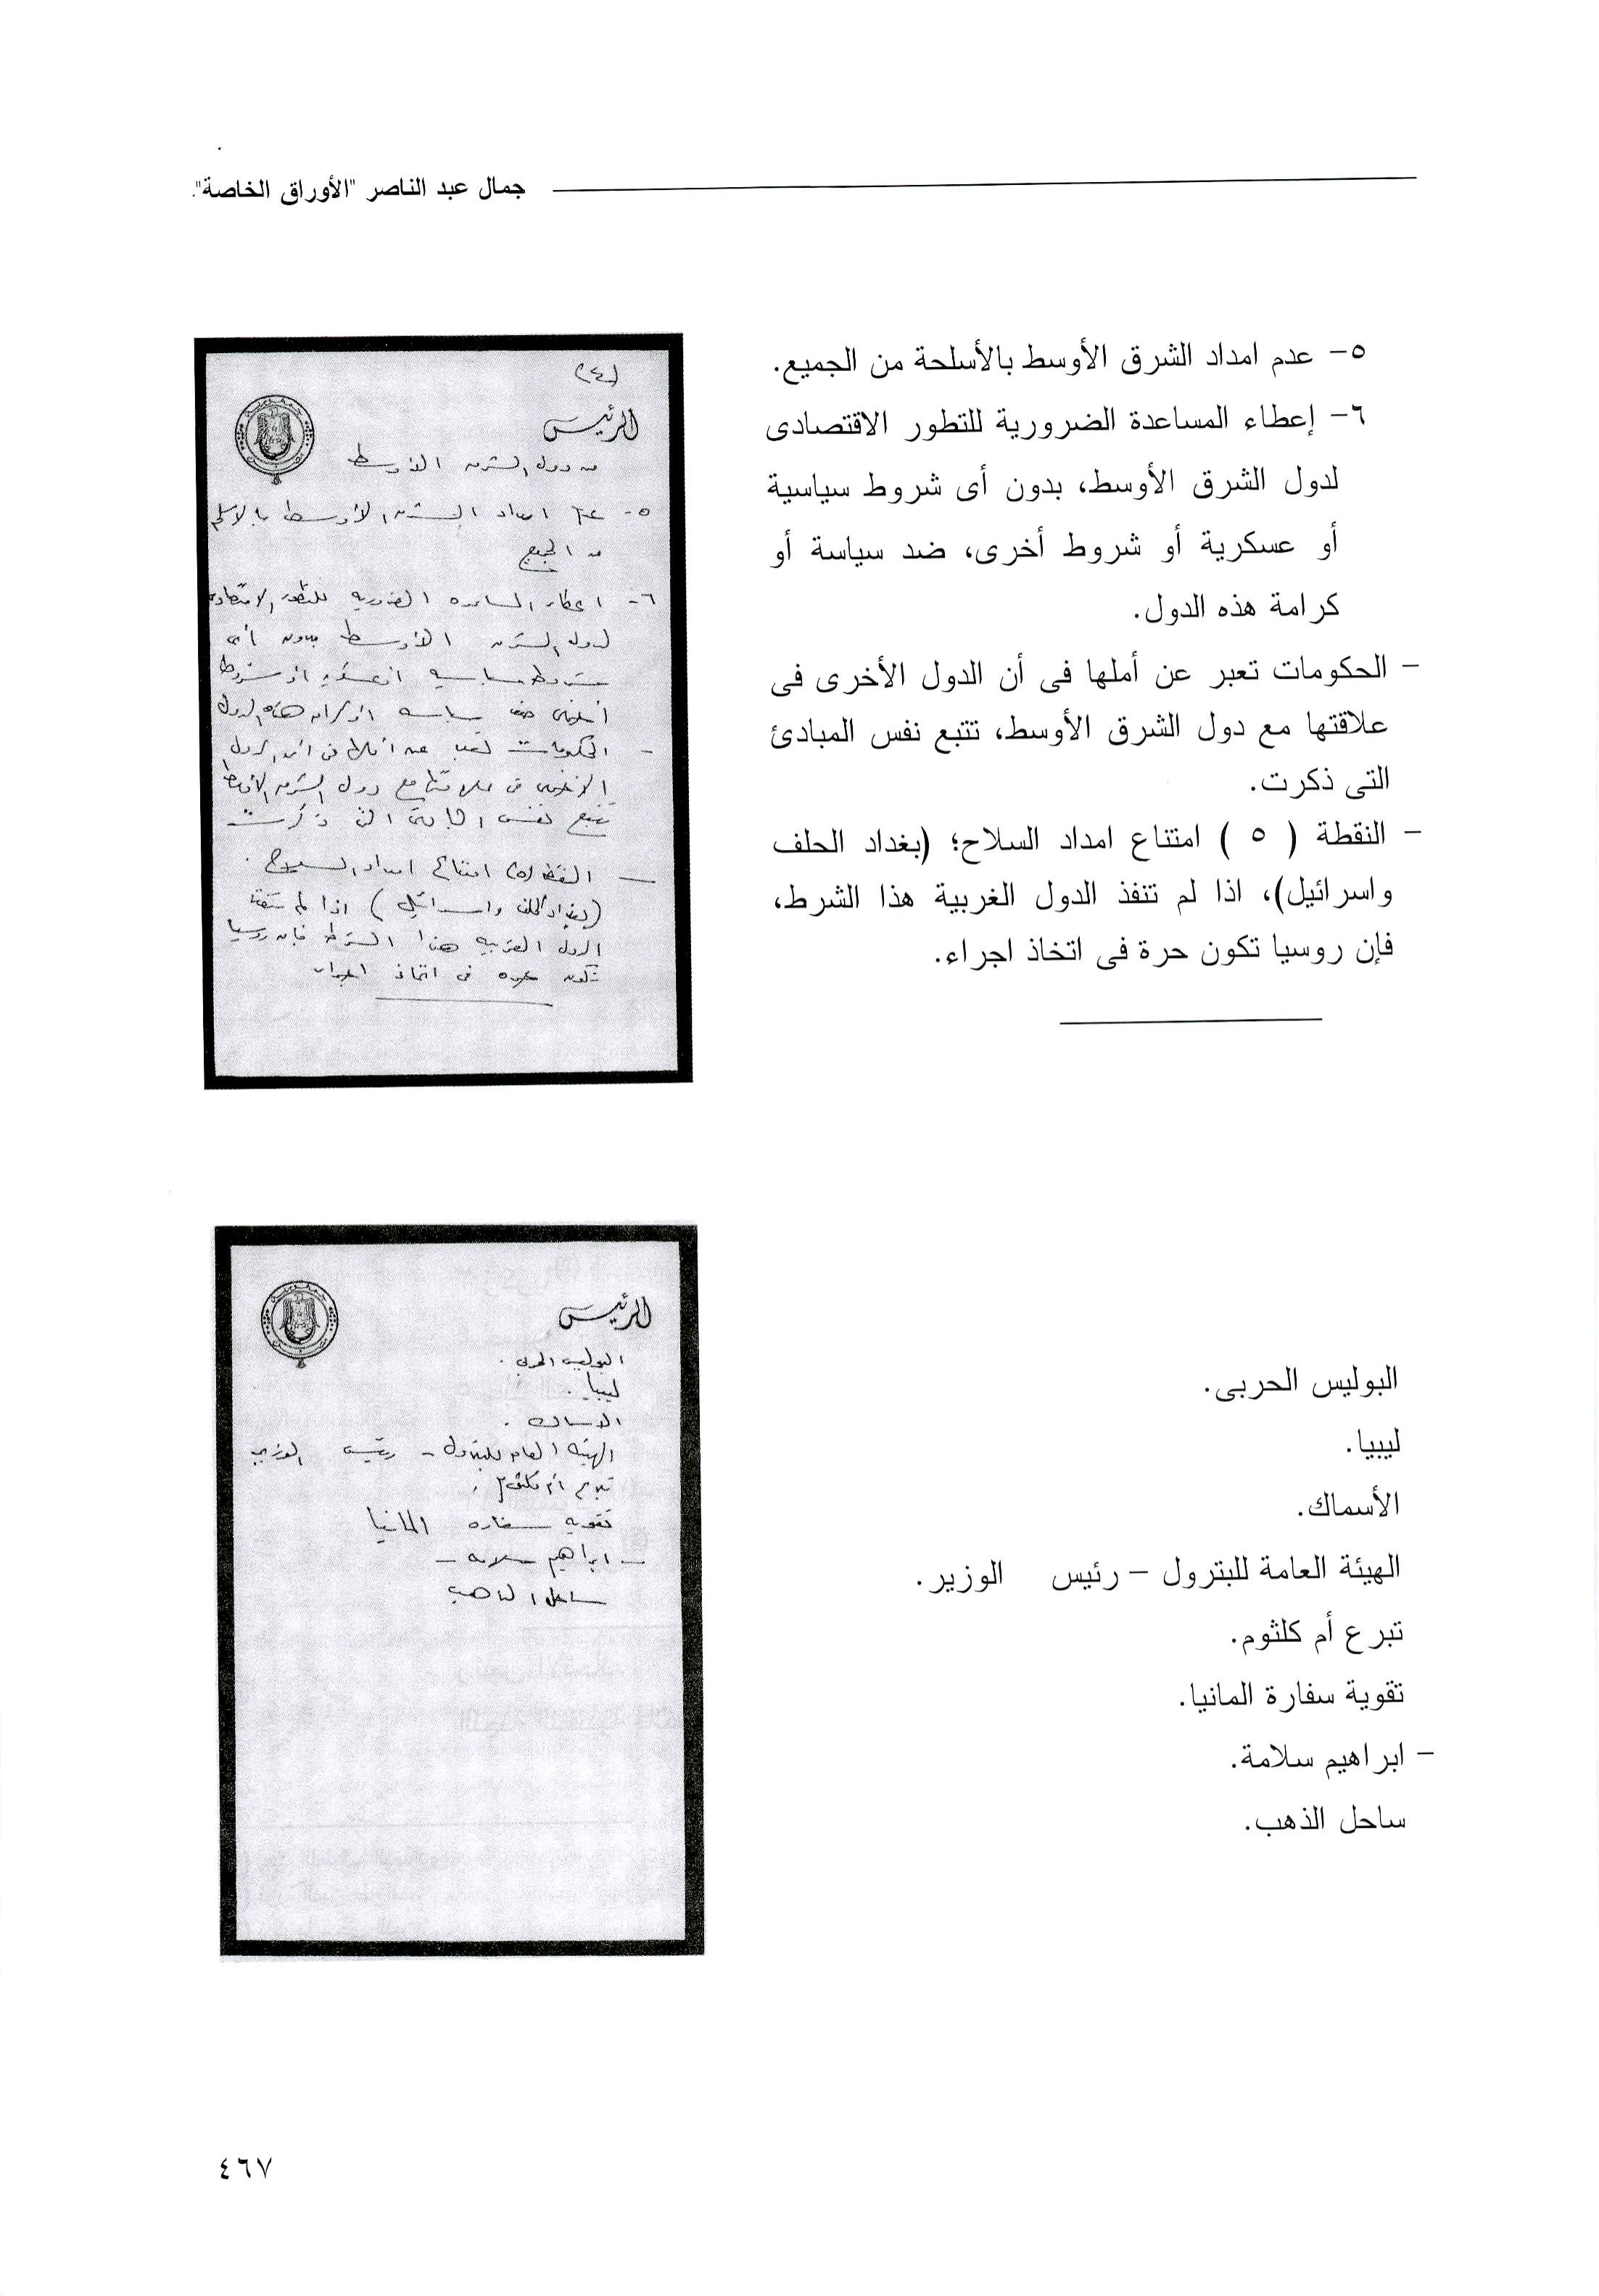 جمال عبد الناصر "الأوراق الخاصة".
٥- عدم امداد الشرق الأوسط بالأسلحة من الجميع.
٦- إعطاء المساعدة الضرورية للتطور الاقتصادى
لدول الشرق الأوسط، بدون أى شروط سياسية
أو عسكرية أو شروط أخرى، ضد سياسة أو
كرامة هذه الدول.
- الحكومات تعبر عن أملها فى أن الدول الأخرى فى
علاقتها مع دول الشرق الأوسط، تتبع نفس المبادئ
التى ذكرت.
- النقطة ( ٥ ) امتناع امداد السلاح؛ (بغداد الحلف
واسرائيل)، اذا لم تنفذ الدول الغربية هذا الشرط،
فإن روسيا تكون حرة فى اتخاذ اجراء.
الرئيس
من دول الشرق الأوسط
٥- عدم امداد الشرق الأوسط بالاسلحه
من الجميع
٦- اعطاء المساعده الضروريه للتطور الاقتصادى
لدول الشرق الأوسط بدون أى
شروط سياسيه أو عسكريه أو شروط
أخرى ضد سياسه أو كرامه هذه الدول
- الحكومات تعبر عن أملها فى أن الدول
الأخرى فى علاقتها مع دول الشرق الأوسط
تتبع نفس المبادئ التى ذكرت
- النقطه (٥) امتناع امداد السلاح.
(بغداد الحلف واسرائيل) اذا لم تنفذ
الدول الغربيه هذا الشرط فإن روسيا
تكون حره فى اتخاذ اجراء
البوليس الحربى.
ليبيا.
الأسماك.
الهيئة العامة للبترول - رئيس الوزير.
تبرع أم كلثوم.
تقوية سفارة المانيا.
- ابراهيم سلامة.
ساحل الذهب.
الرئيس
البوليس الحربى.
ليبيا.
الاسماك.
الهيئه العامه للبترول - رئيس الوزير
تبرع أم كلثوم.
تقويه سفاره المانيا
- ابراهيم سلامه -
ساحل الذهب
٤٦٧